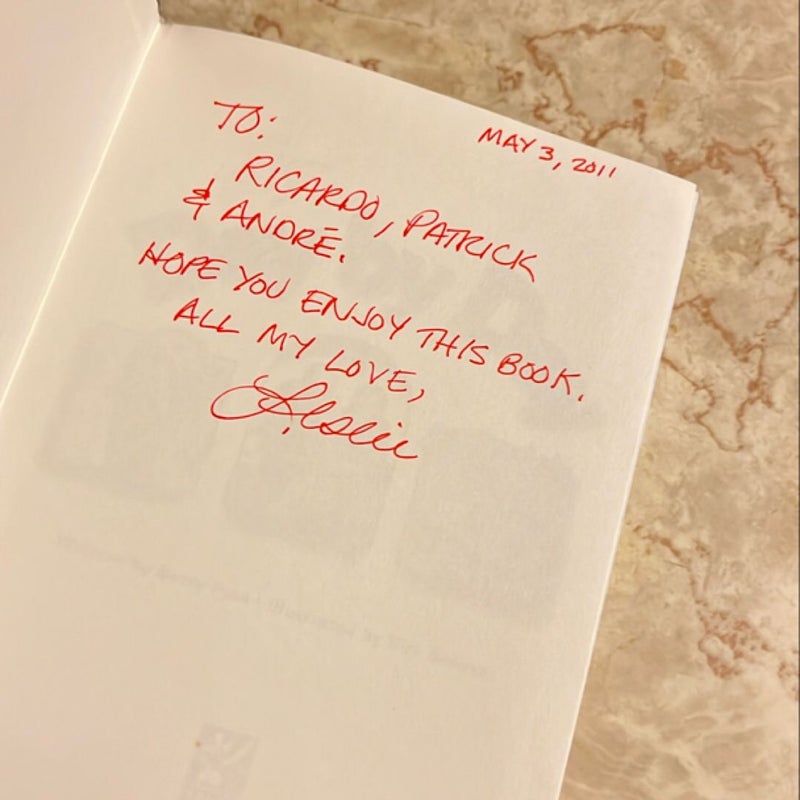 MAY 3, 2011
TO:
RICARDO, PATRICK
& ANDRÉ.
HOPE YOU ENJOY THIS BOOK.
ALL MY LOVE,
Leslie